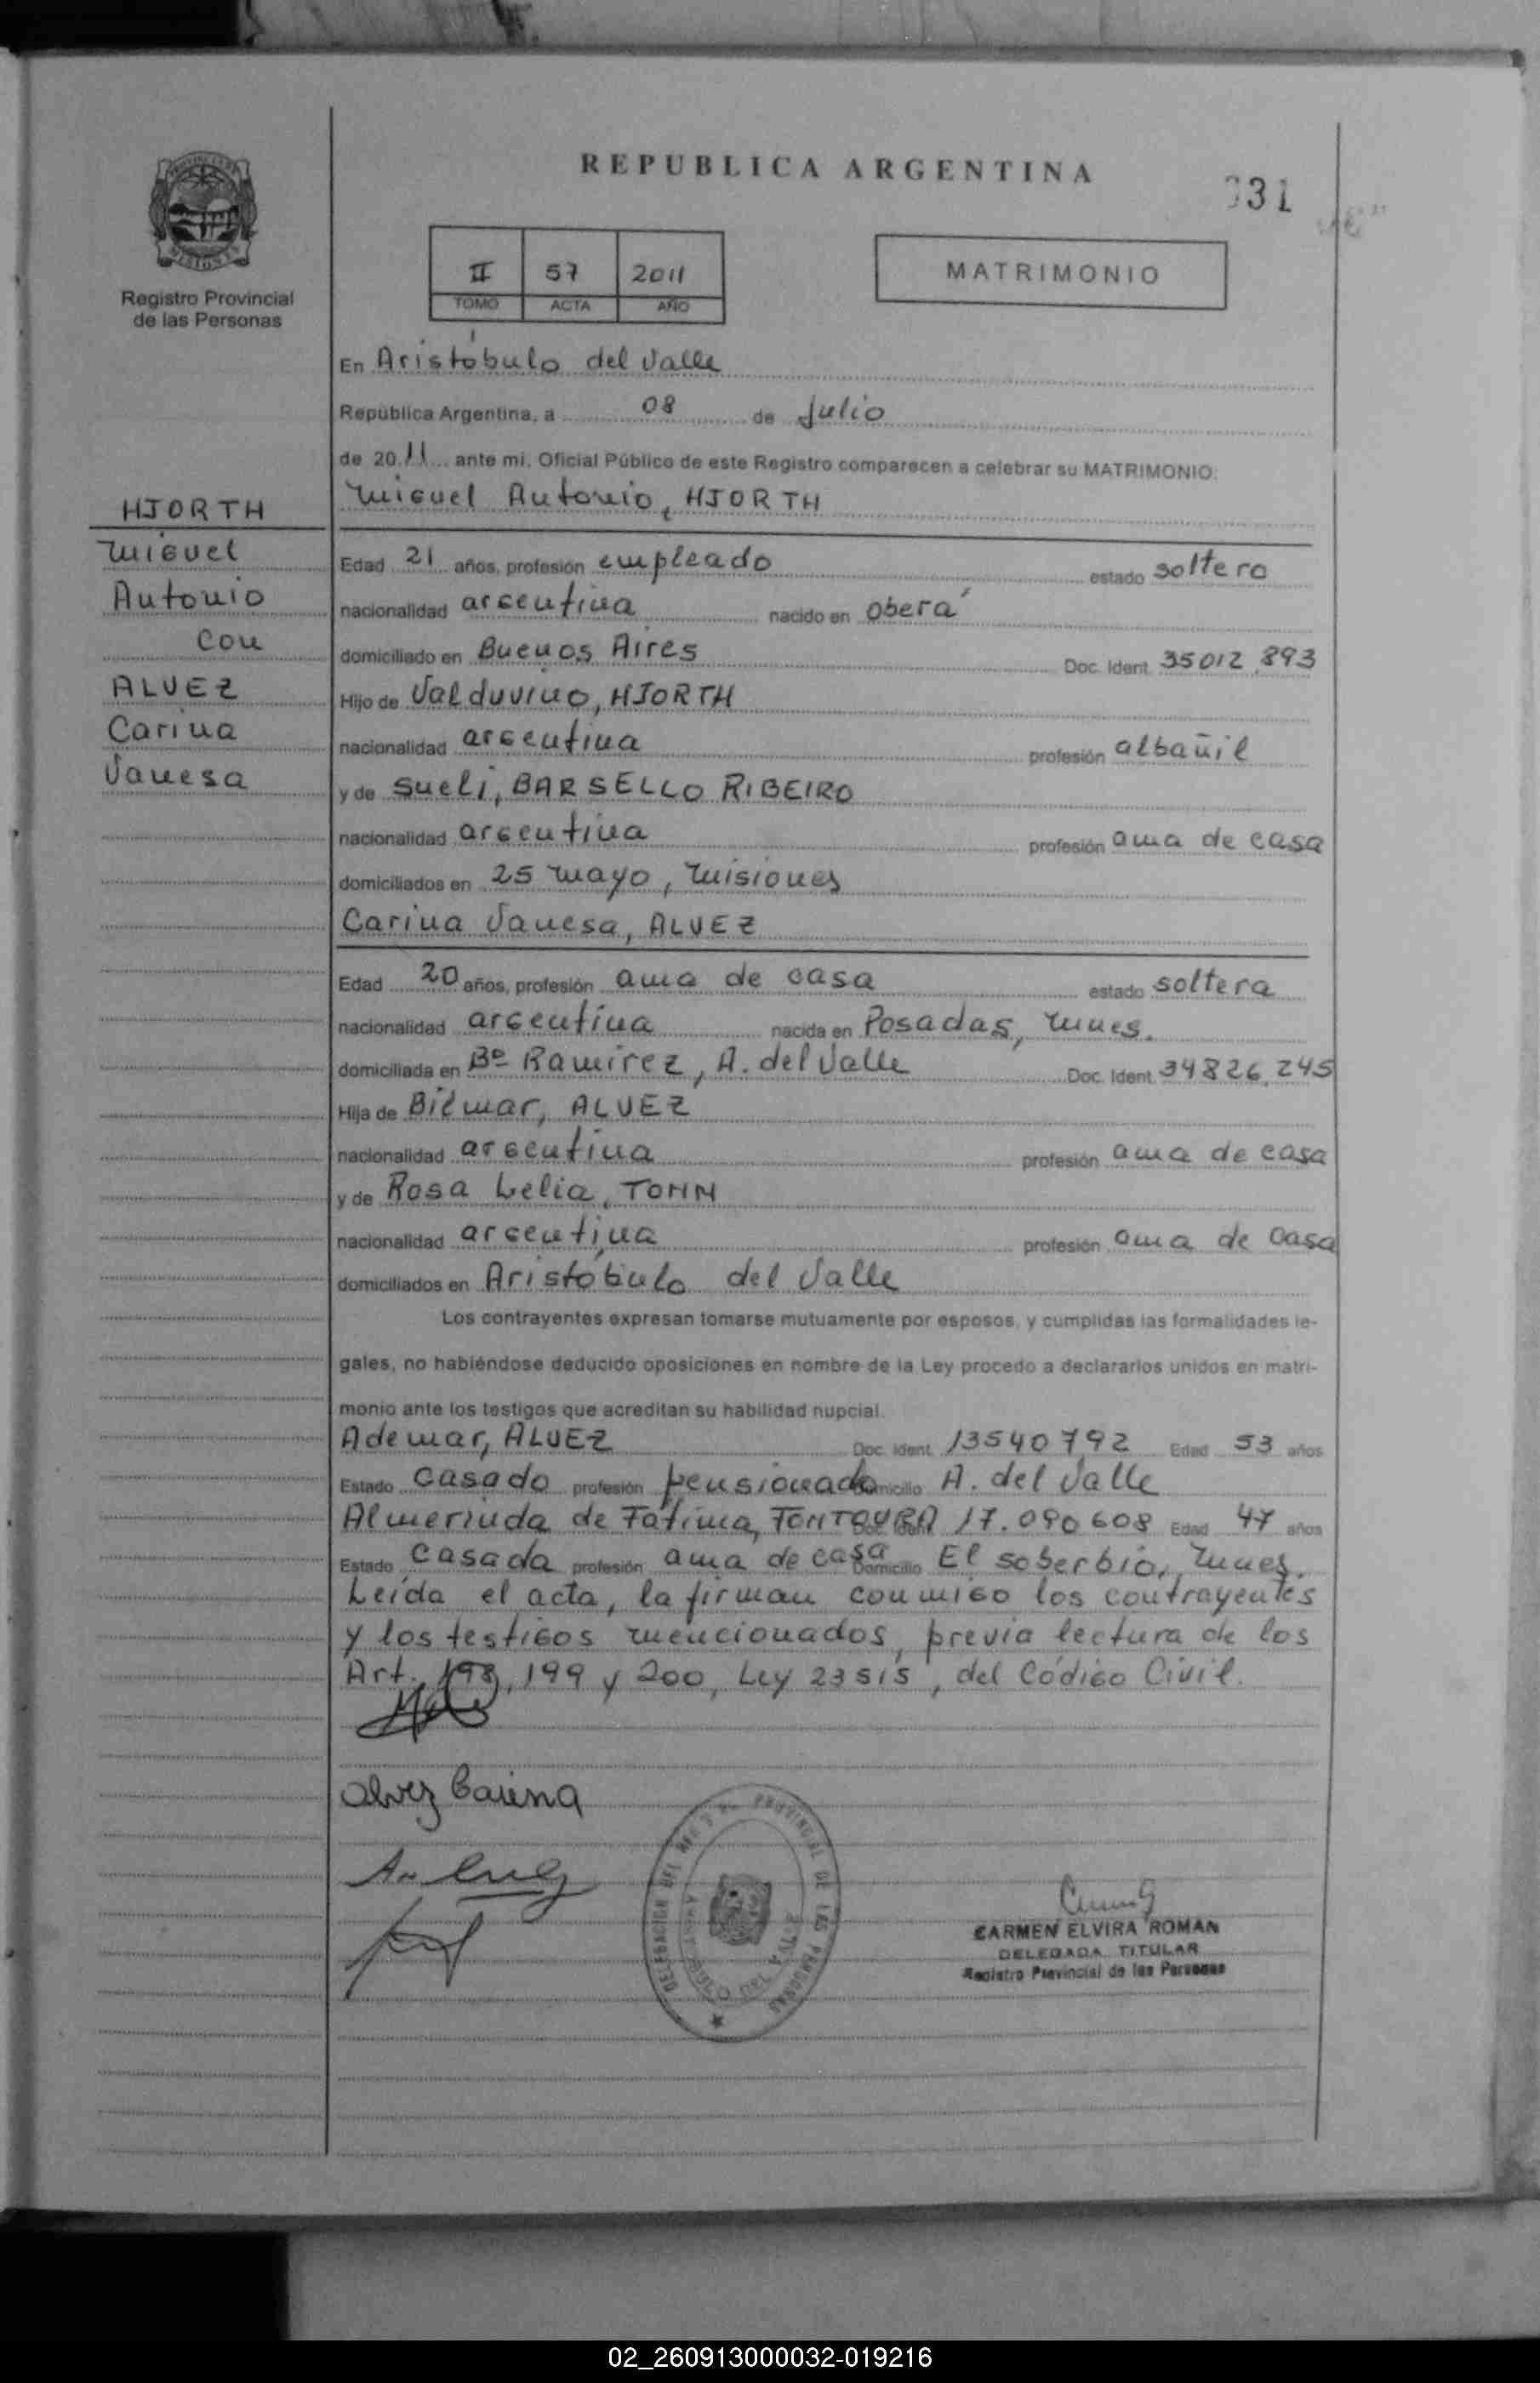 REPUBLICA ARGENTINA
331
Registro Provincial
de las Personas
II 57 2011
TOMO ACTA AÑO
MATRIMONIO
En Aristóbulo del Valle
República Argentina, a 08 de Julio
de 2011 ante mi, Oficial Público de este Registro comparecen a celebrar su MATRIMONIO:
Miguel Antonio, HJORTH
HJORTH
Miguel
Antonio
con
ALVEZ
Carina
Vanesa
Edad 21 años, profesión empleado estado soltero
nacionalidad argentina nacido en Oberá
domiciliado en Buenos Aires Doc. Ident. 35012.893
Hijo de Valduvino, HJORTH
nacionalidad argentina profesión albañil
y de Sueli, BARSELLO RIBEIRO
nacionalidad argentina profesión ama de casa
domiciliados en 25 mayo, Misiones
Carina Vanesa, ALVEZ
Edad 20 años, profesión ama de casa estado soltera
nacionalidad argentina nacida en Posadas, Mnes.
domiciliada en Bº Ramirez, A. del Valle Doc. Ident. 34826.245
Hija de Bilmar, ALVEZ
nacionalidad argentina profesión ama de casa
y de Rosa Lelia, TONN
nacionalidad argentina profesión ama de casa
domiciliados en Aristóbulo del Valle
Los contrayentes expresan tomarse mutuamente por esposos, y cumplidas las formalidades le-
gales, no habiéndose deducido oposiciones en nombre de la Ley procedo a declararlos unidos en matri-
monio ante los testigos que acreditan su habilidad nupcial.
Ademar, ALVEZ Doc. Ident. 13540792 Edad 53 años
Estado Casado profesión pensionado Domicilio A. del Valle
Almerinda de Fátima, FONTOURA Doc. Ident. 17.090608 Edad 47 años
Estado Casada profesión ama de casa Domicilio El soberbio, Mnes.
Leída el acta, la firman conmigo los contrayentes
y los testigos mencionados, previa lectura de los
Art. 198, 199 y 200, Ley 23515, del Código Civil.
Alvez Carina
DELEGACION DEL REG. PROVINCIAL DE LAS PERSONAS
DEL VALLE
CARMEN ELVIRA ROMAN
DELEGADA TITULAR
Registro Provincial de las Personas
02_260913000032-019216